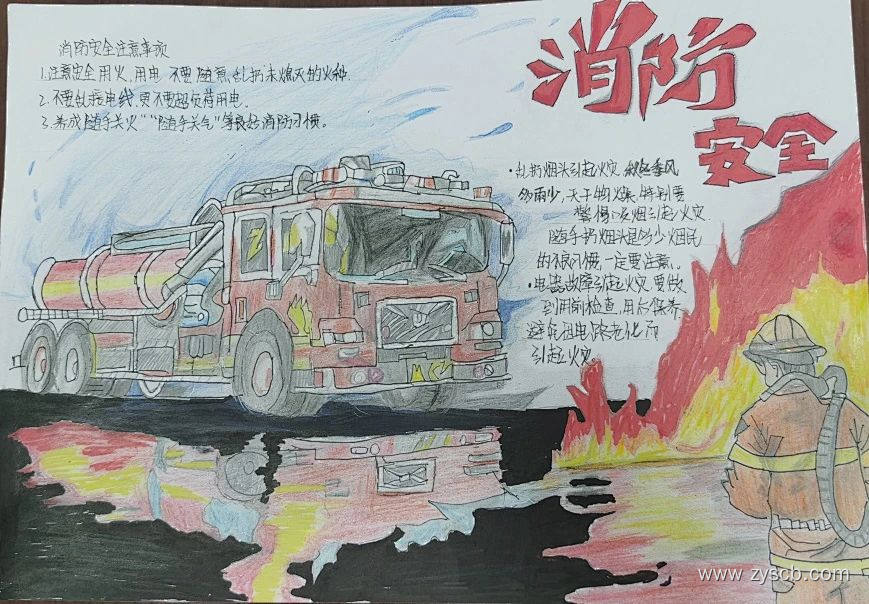 消防
安全
消防安全注意事项
1.注意安全用火,用电 不要随意乱扔未熄灭的火种.
2.不要乱接电线,更不要超负荷用电.
3.养成“随手关火”“随手关气”等良好消防习惯。
·乱扔烟头引起火灾 秋冬季风
多雨少,天干物燥 特别要
警惕 烟引起火灾.
随手扔烟头是多少烟民
的不良习惯,一定要注意。
·电器故障引起火灾 要做
到用前检查,用后保养
避免 电路老化而
引起火灾。
www.zyscb.com